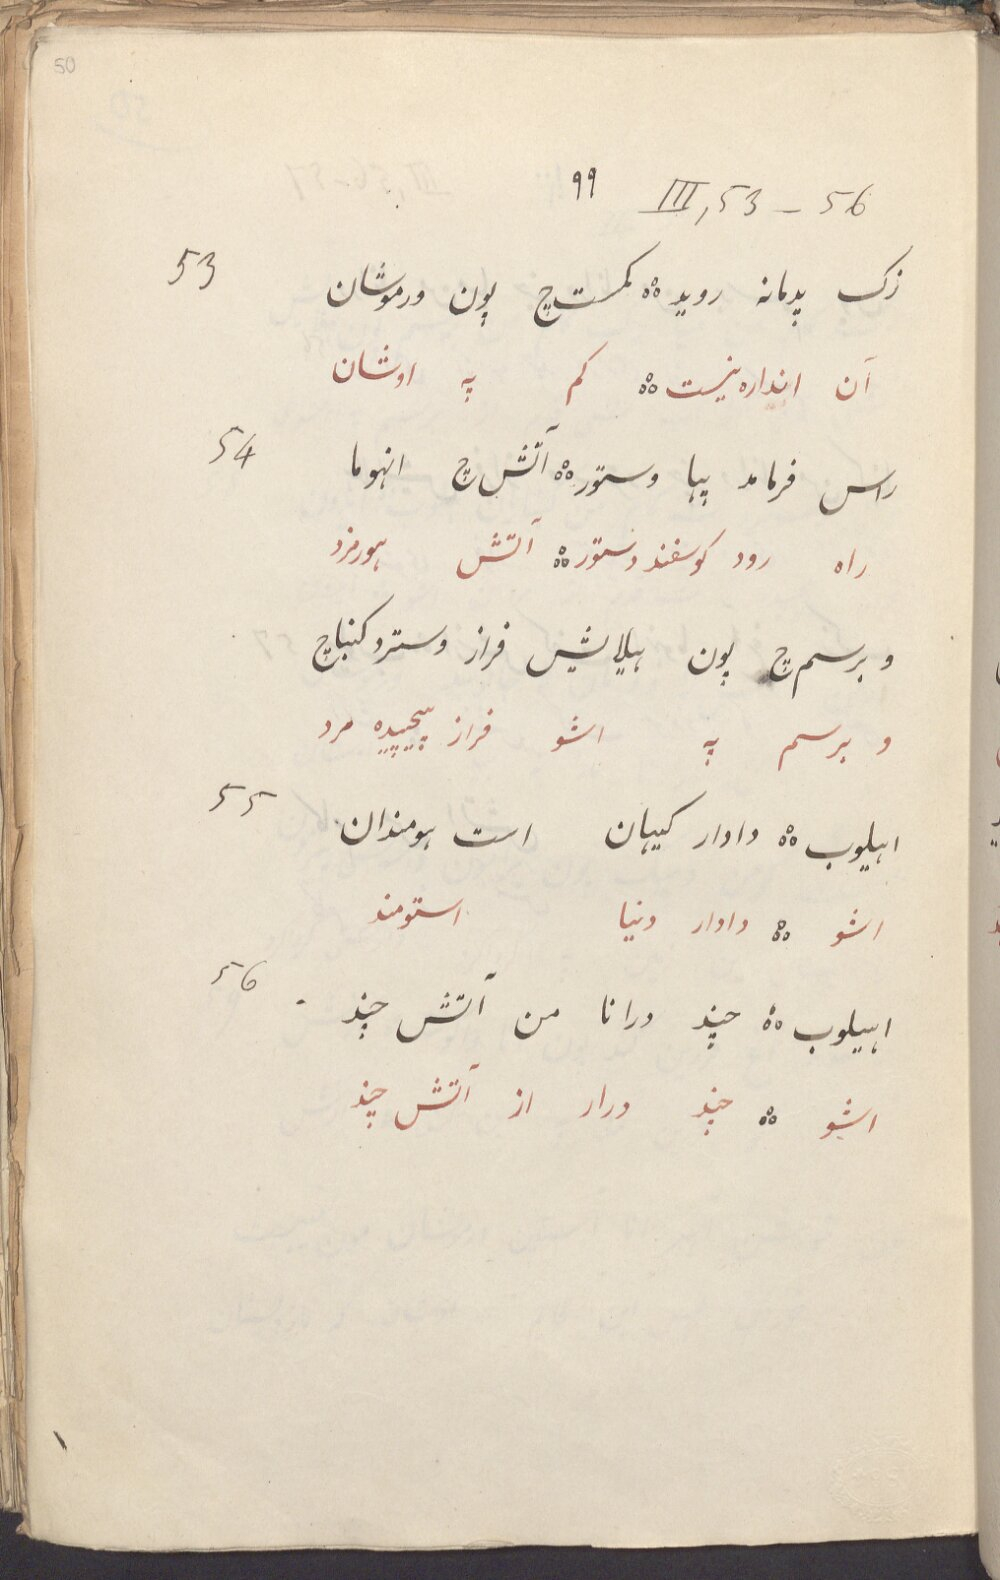 50
۹۹ III, 53 – 56
53 زک پدمانه روید ༶ کمست‌چ پون ورموشان
آن اندازه نیست ༶ کم په اوشان
54 راس فرمامد پها وستور ༶ آتش‌چ انهوما
راه رود کوسفند دستور ༶ آتش هورمزد
و برسم‌چ پون هیلایش فراز وسترو کنباچ
و برسم په اشو فراز پیچیده مرد
55 اهیلوب ༶ دادار کیهان است هومندان
اشو ༶ دادار دنیا استومند
56 اهیلوب ༶ چند درانا من آتش چند
اشو ༶ چند درار از آتش چند